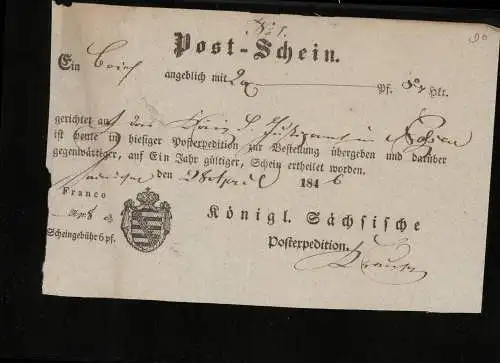 No 1.
Post-Schein.
Ein Brief angeblich mit Pf. Lt.
gerichtet an das Justizamt in
ist heute in hiesiger Postexpedition zur Bestellung übergeben und darüber
gegenwärtiger, auf Ein Jahr gültiger, Schein ertheilet worden.
den 2 April 1846
Franco
Königl. Sächsische
Scheingebühr 6 pf.
Postexpedition.